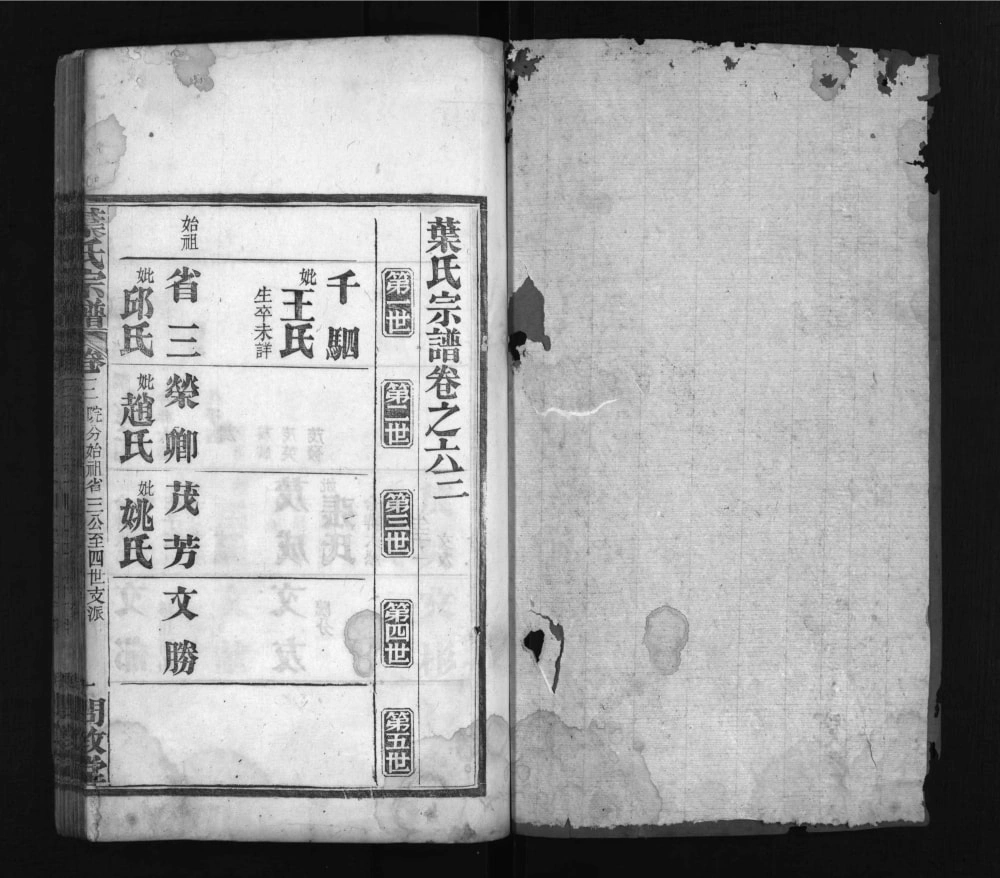 葉氏宗譜卷之六三
第一世
第二世
第三世
第四世
第五世
千駟
妣王氏
生卒未詳
始祖
省三
榮卿
茂芳
文勝
妣邱氏
妣趙氏
妣姚氏
葉氏宗譜
卷三
院分始祖省三公至四世支派
一